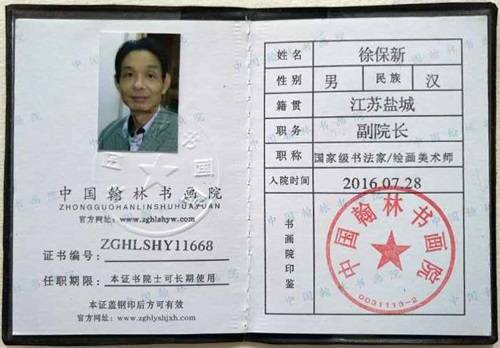 中国翰林书画院
ZHONGGUOHANLINSHUHUAYUAN
官方网址:www.zghlshyw.com
证书编号: ZGHLSHY11668
任职期限: 本证书院士可长期使用
本证盖钢印后方可有效
官方网址: www.zghlyshjxh.com
姓名 徐保新
性别 男 民族 汉
籍贯 江苏盐城
职务 副院长
职称 国家级书法家/绘画美术师
入院时间 2016.07.28
书画院印鉴
中国翰林书画院
0031113-2